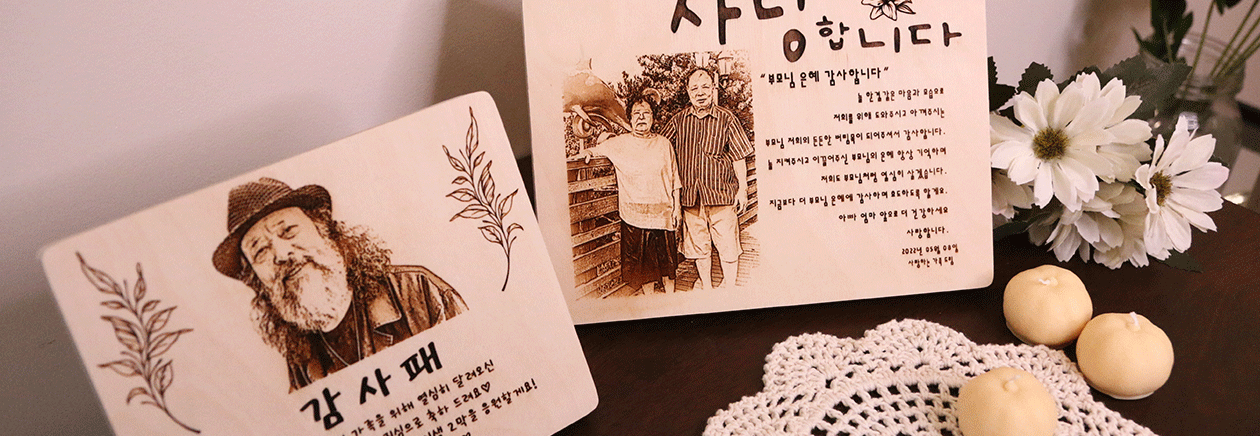 사랑합니다
"부모님 은혜 감사합니다"
늘 한결같은 마음과 모습으로
저희를 위해 도와주시고 아껴주시는
부모님 저희의 든든한 버팀목이 되어주셔서 감사합니다.
늘 지켜주시고 이끌어주신 부모님의 은혜 항상 기억하며
저희도 부모님처럼 열심히 살겠습니다.
지금보다 더 부모님 은혜에 감사하며 효도하도록 할게요.
아빠 엄마 앞으로 더 건강하세요
사랑합니다.
2022년 05월 08일
사랑하는 가족 드림
감사패
가족을 위해 열심히 달려오신
진심으로 축하 드려요♡
인생 2막을 응원할게요!